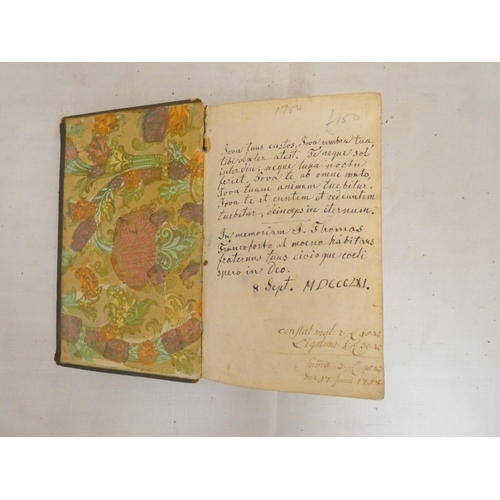 1784
£150
Jova tuus custos, Jova umbra tua
tibi dextra adest. Te neque sol
interdiu, neque luna noctu
feriet. Jova te ab omne malo,
Jova tuam animam tuebitur.
Jova te et euntem et redeuntem
tuebitur, deincepsque eternum.
In memoriam J. Thomas
Francoforto al moeno habitans
fraternus tuus civisque coeli
spero in Deo.
8 Sept. MDCCCLXI.
constat
Ligatura
17 Junii 1784